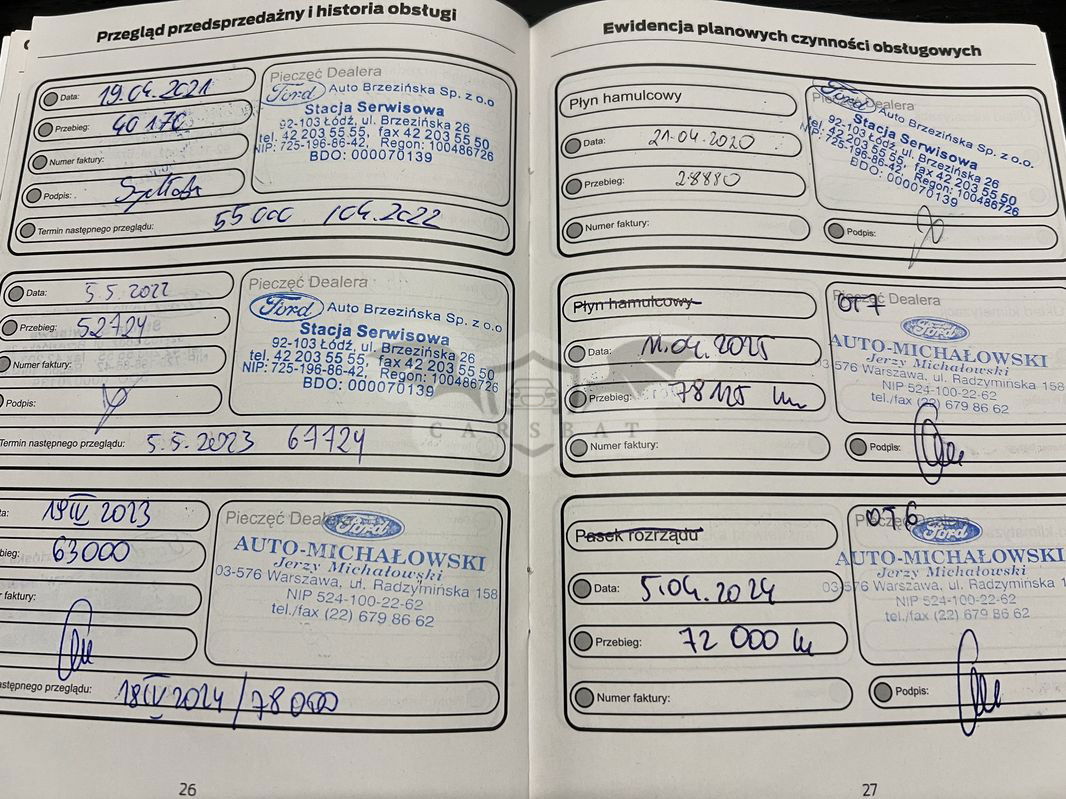 Przegląd przedsprzedażny i historia obsługi
Data: 19.04.2021
Przebieg: 40 170
Numer faktury:
Podpis:
Termin następnego przeglądu: 55 000 / 04.2022
Pieczęć Dealera
Ford Auto Brzezińska Sp. z o.o
Stacja Serwisowa
92-103 Łódź, ul. Brzezińska 26
tel. 42 203 55 55, fax 42 203 55 50
NIP: 725-196-86-42, Regon: 100486726
BDO: 000070139
Data: 5.5.2022
Przebieg: 52724
Numer faktury:
Podpis:
Termin następnego przeglądu: 5.5.2023 67724
Pieczęć Dealera
Ford Auto Brzezińska Sp. z o.o
Stacja Serwisowa
92-103 Łódź, ul. Brzezińska 26
tel. 42 203 55 55, fax 42 203 55 50
NIP: 725-196-86-42, Regon: 100486726
BDO: 000070139
ta: 19 IV 2023
bieg: 63000
r faktury:
astępnego przeglądu: 18 IV 2024 / 78 000
Pieczęć Dealera
Ford
AUTO-MICHAŁOWSKI
Jerzy Michałowski
03-576 Warszawa, ul. Radzymińska 158
NIP 524-100-22-62
tel./fax (22) 679 86 62
26
Ewidencja planowych czynności obsługowych
Płyn hamulcowy
Data: 21-04-2020
Przebieg: 28880
Numer faktury:
Pieczęć Dealera
Ford Auto Brzezińska Sp. z o.o.
Stacja Serwisowa
92-103 Łódź, ul. Brzezińska 26
tel. 42 203 55 55, fax 42 203 55 50
NIP: 725-196-86-42, Regon: 100486726
BDO: 000070139
Podpis:
Płyn hamulcowy
Data: 11.04.2025
Przebieg: 78125 km
Numer faktury:
Pieczęć Dealera
OT7
Ford
AUTO-MICHAŁOWSKI
Jerzy Michałowski
03-576 Warszawa, ul. Radzymińska 158
NIP 524-100-22-62
tel./fax (22) 679 86 62
Podpis:
Pasek rozrządu
Data: 5.04.2024
Przebieg: 72 000 km
Numer faktury:
Pieczęć Dealera
OT6
Ford
AUTO-MICHAŁOWSKI
Jerzy Michałowski
03-576 Warszawa, ul. Radzymińska
NIP 524-100-22-62
tel./fax (22) 679 86 62
Podpis:
27
CARSBAT